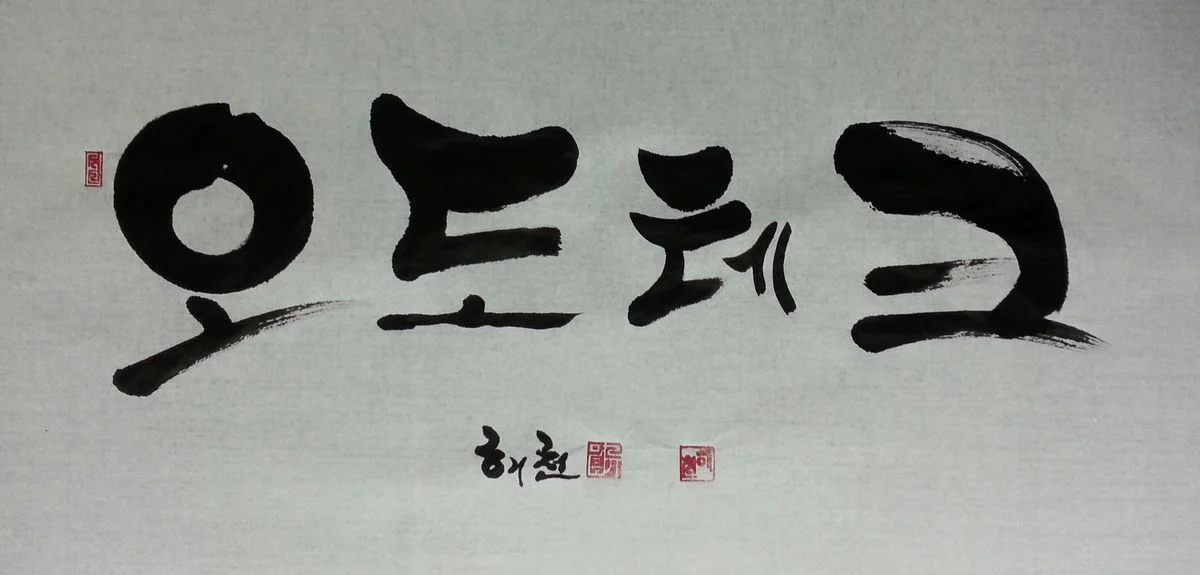 오도테크
해천